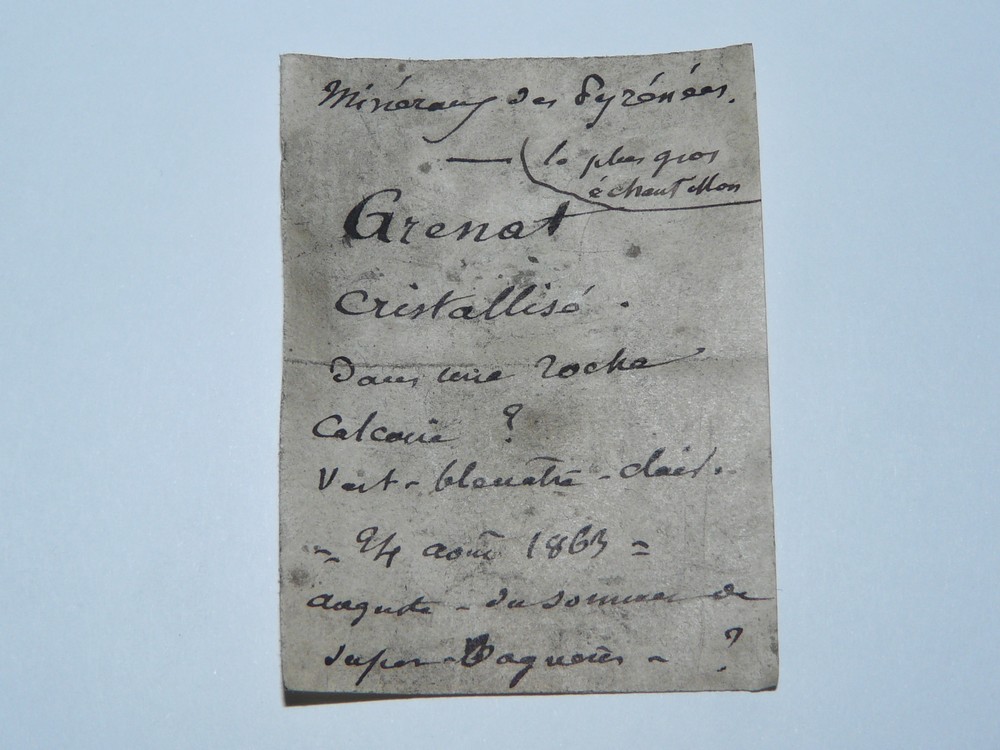 Minéraux des Pyrénées.
— (le plus gros
échantillon
Grenat
Cristallisé.
Dans une roche
Calcaire ?
Vert-bleuatre-clair.
= 24 août 1863 =
auguste - du sommet de
super-Bagneres - ?